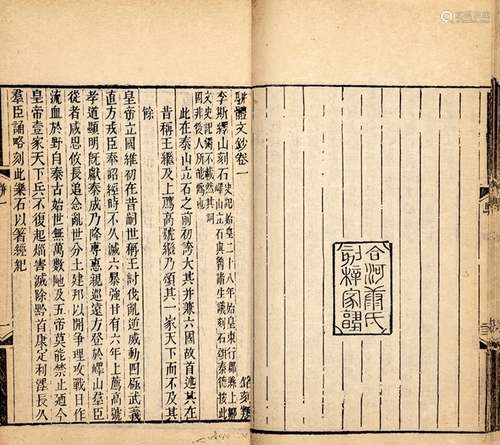 合河康氏
刻梓家塾
駢體文鈔卷一
銘刻類
李斯繹山刻石
史記始皇二十八年始皇東行郡縣上鄒
嶧山立石與魯諸生議刻石頌秦德按此
文史記獨不載然其詞
固非後人所能為也
此在泰山立石之前初誇大其并兼六國故首述其
昔稱王繼及上薦高號繼乃頌其一家天下而不及其
餘
皇帝立國維初在昔嗣世稱王討伐亂逆威動四極武義
直方戎臣奉詔經時不久滅六暴強廿有六年上薦高號
孝道顯明既獻泰成乃降專惠親巡遠方登於嶧山羣臣
從者咸思攸長追念亂世分土建邦以開爭理攻戰日作
流血於野自泰古始世無萬數阤及五帝莫能禁止迺今
皇帝壹家天下兵不復起熖害滅除黔首康定利澤長久
羣臣誦略刻此樂石以箸經紀